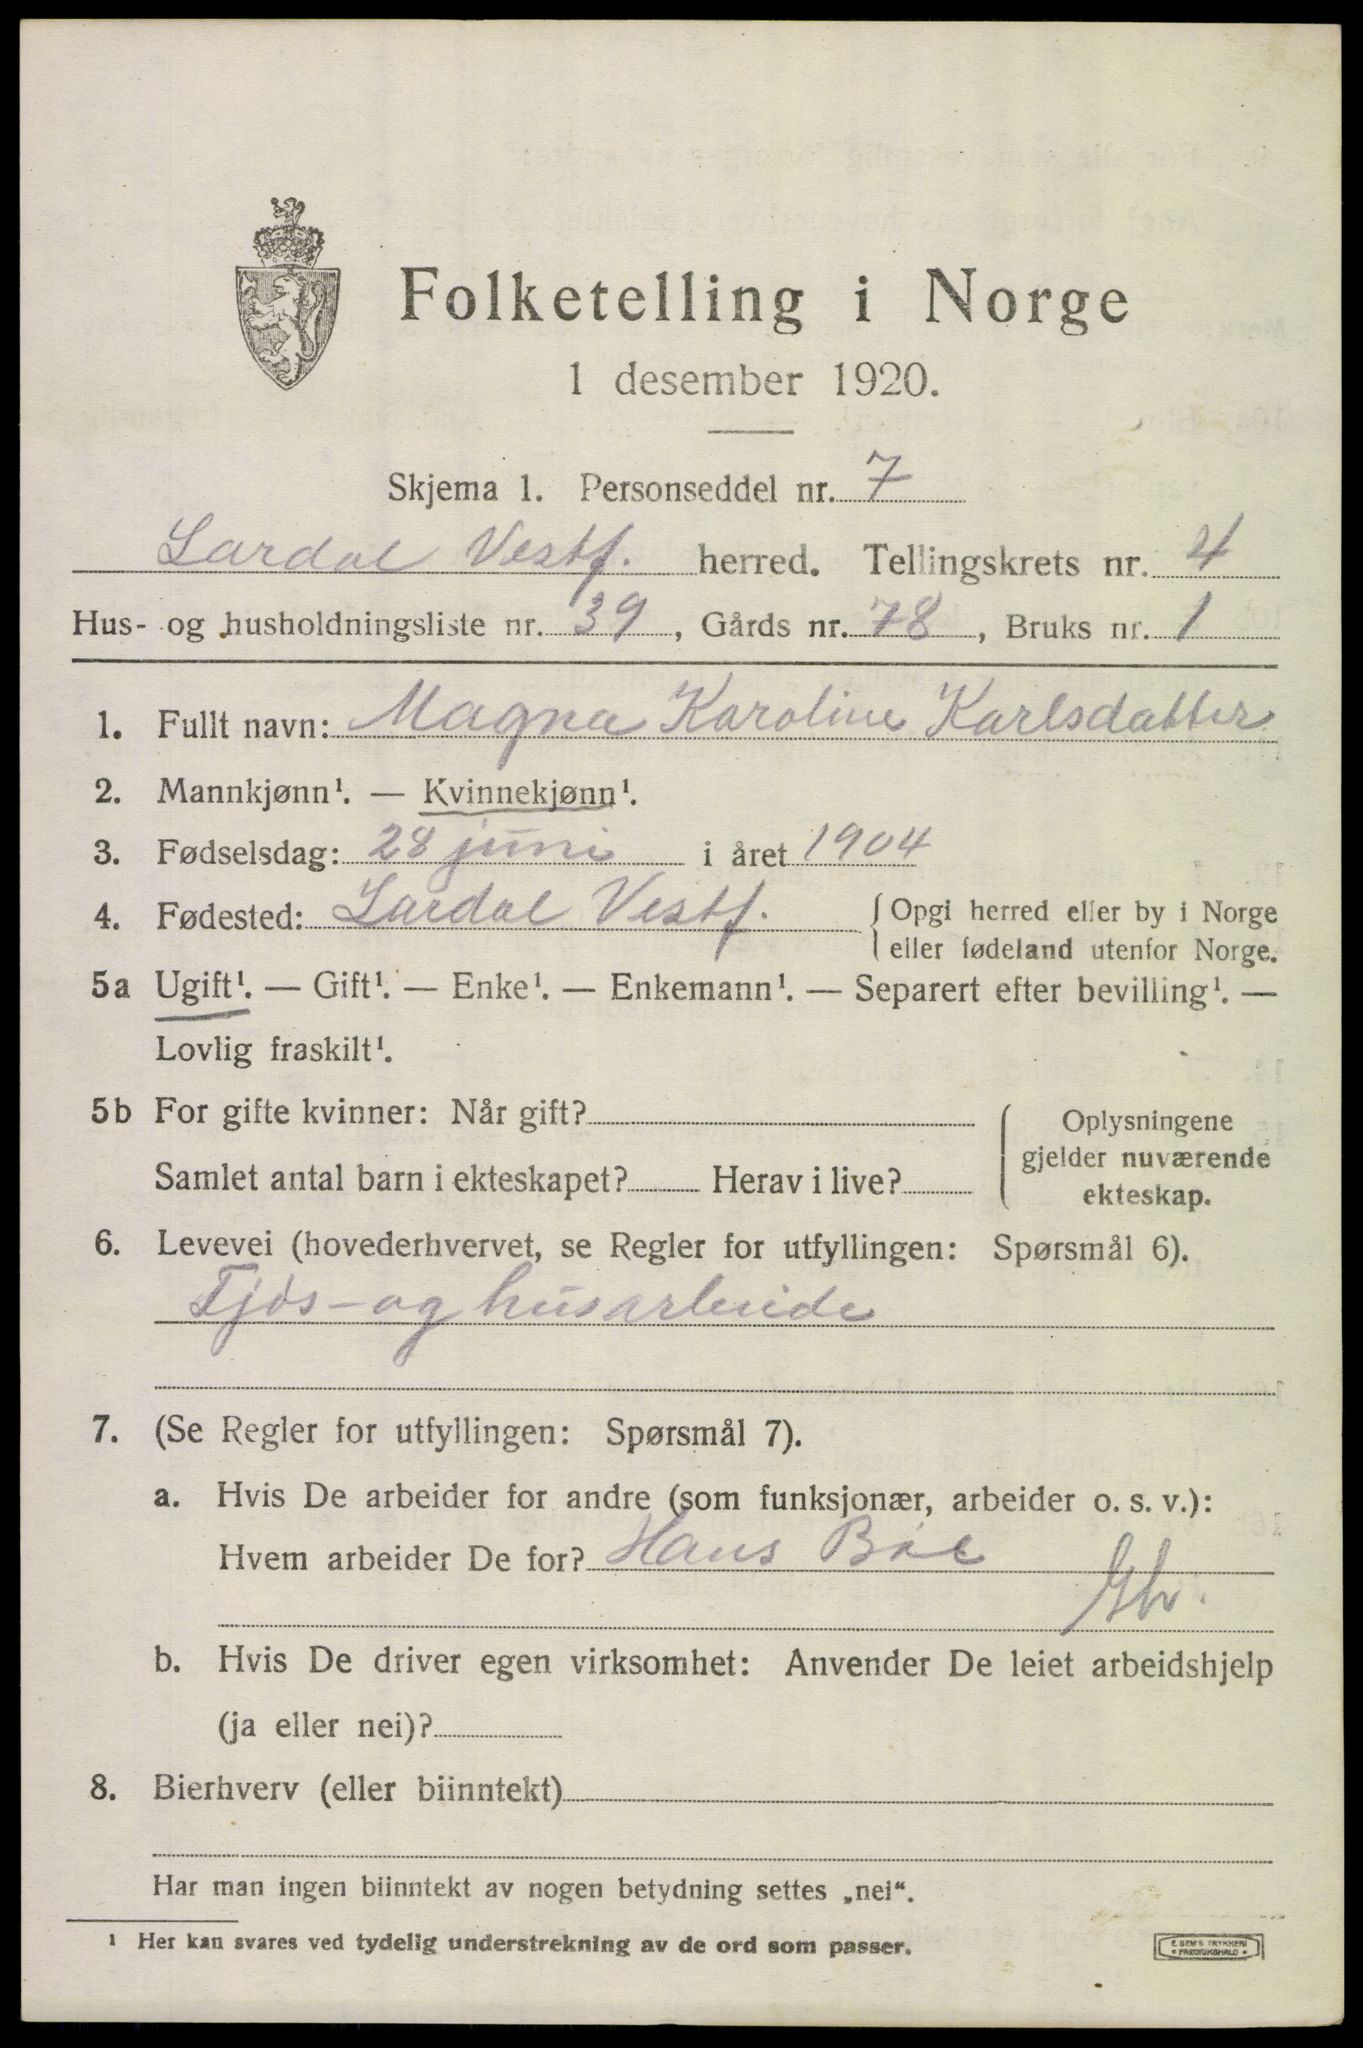 Folketelling i Norge
1 desember 1920.
Skjema 1. Personseddel nr. 7
Lardal Vestf. herred. Tellingskrets nr. 4
Hus- og husholdningsliste nr. 39, Gårds nr. 78, Bruks nr. 1
1. Fullt navn: Magna Karoline Karlsdatter
2. Mannkjønn¹. — Kvinnekjønn¹.
3. Fødselsdag: 28 juni i året 1904
4. Fødested: Lardal Vestf. { Opgi herred eller by i Norge
eller fødeland utenfor Norge.
5a Ugift¹. — Gift¹. — Enke¹. — Enkemann¹. — Separert efter bevilling¹. —
Lovlig fraskilt¹.
5b For gifte kvinner: Når gift?
Samlet antal barn i ekteskapet? Herav i live?
Oplysningene
gjelder nuværende
ekteskap.
6. Levevei (hovederhvervet, se Regler for utfyllingen: Spørsmål 6).
Fjøs- og husarbeide
7. (Se Regler for utfyllingen: Spørsmål 7).
a. Hvis De arbeider for andre (som funksjonær, arbeider o. s. v.):
Hvem arbeider De for? Hans Bøe
b. Hvis De driver egen virksomhet: Anvender De leiet arbeidshjelp
(ja eller nei)?
8. Bierhverv (eller biinntekt)
Har man ingen biinntekt av nogen betydning settes „nei“.
¹ Her kan svares ved tydelig understrekning av de ord som passer.
E. SEM'S TRYKKERI
FREDRIKSHALD